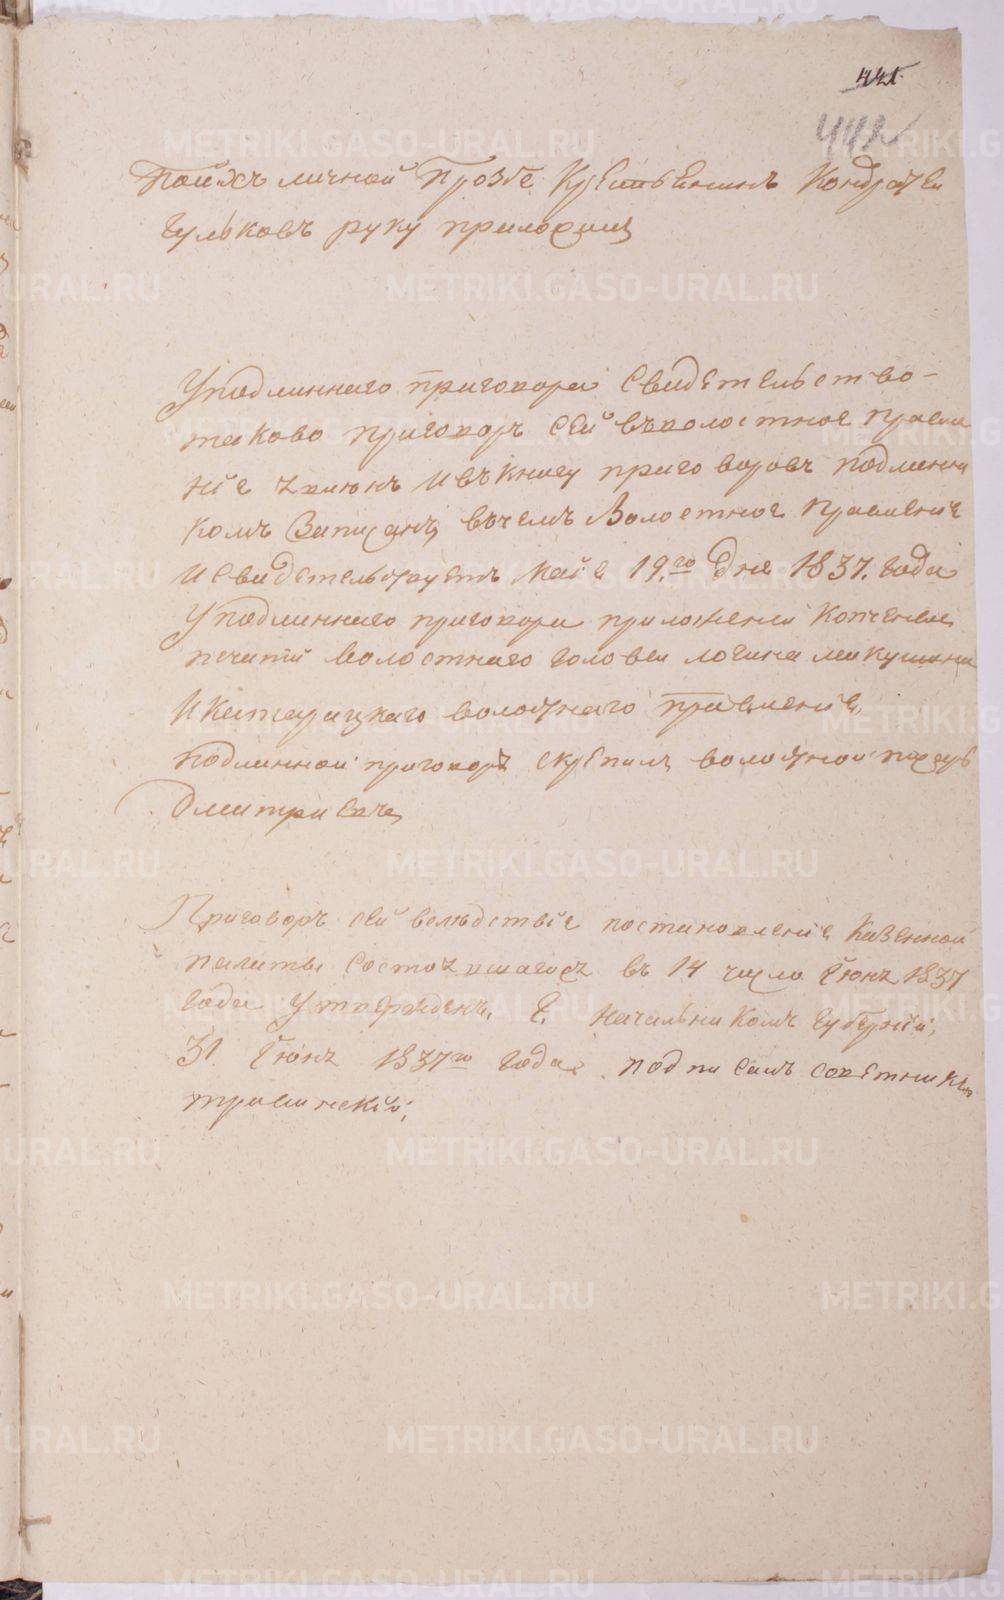 441
442
По ихъ личной прозбе крестьянинъ Кондратеи
Гульковъ руку приложилъ
У подлиннаго приговора свидетельство-
таково приговоръ сей въ волостное правле
ніе явленъ и въ книгу приговоровъ подлинни
комъ записанъ, въ чемъ волостное правленіе
и свидетельствуетъ маія 19.го дня 1837. года
У подлиннаго приговора приложены копченые
печати волостнаго головы Логина Макушина
И катарацкаго волостнаго правленія,
подлинной приговоръ скрепилъ волостной писарь
Дмитріевъ
Приговоръ сей вследствіе постановленія казенной
палаты состоявшагося въ 14 число Іюня 1837
года утвержденъ, Г. начальникомъ губерніи,
31 Іюня 1837го года подписалъ советникъ
METRIKI.GASO-URAL.RU